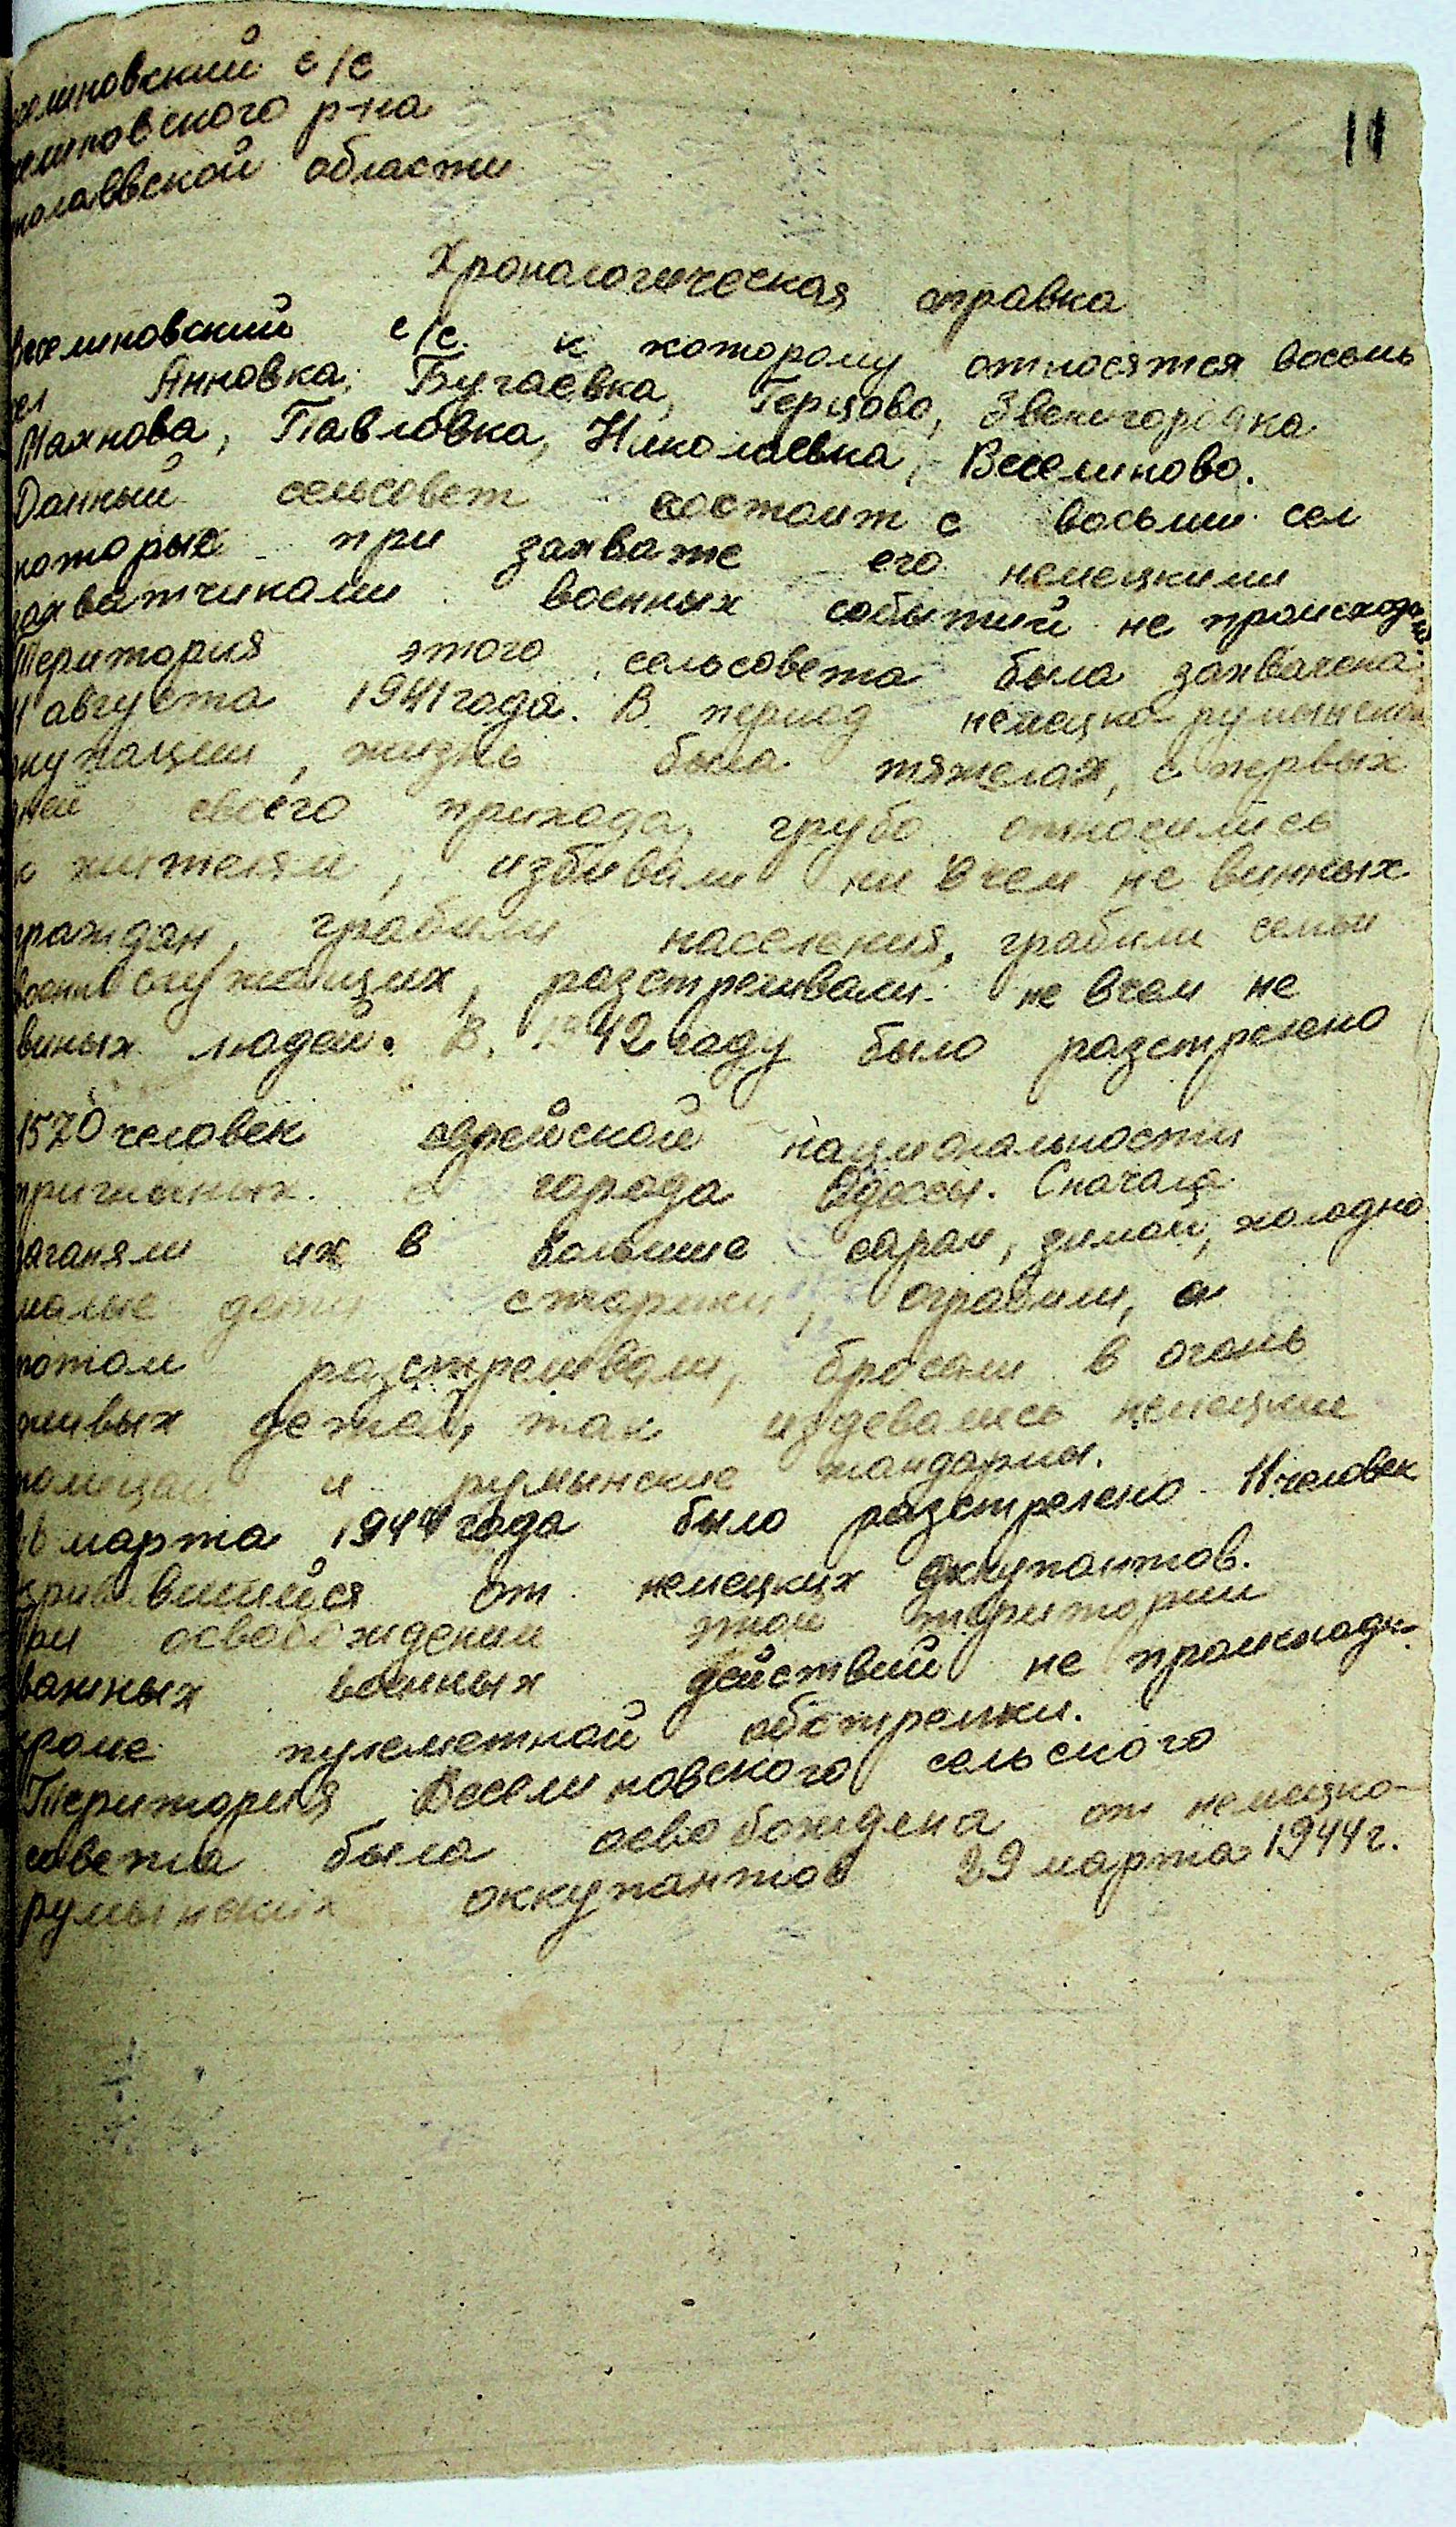 11
селиновский с/с
селиновского р-на
колаевской области
Хронологическая справка
Веселиновский с/с. к которому относятся восемь
сел Анновка, Бугаевка, Герцово, Звенигородка
Махнова, Павловка, Николаевка, Веселиново.
Данный сельсовет состоит с восьми сел
которых при захвате его немецкими
захватчиками военных событий не происходило
Територия этого сельсовета была захвачена
11 августа 1941 года. В период немецко румынской
окупации, жизнь была тяжелая, с первых
дней своего прихода, грубо относились
к жителям, избивали ни вчем не винных
граждан, грабили населения, грабили семьи
военнослужащих, разстреливали не вчем не
виных людей. В 1942 году было разстрелено
1570 человек еврейской национальности
пригнаных с города Одессы. Сначала
загоняли их в большие сараи, зимой, холодно
малые дети старики, ограбили, а
потом разстреливали, бросали в огонь
живых детей, так издевались немецкие
и румынские жандармы.
16 марта 1944 года было разстрелено 11 человек
от немецких оккупантов.
При освобождении этой територии
важных военных действий не происходи-
кроме пулеметной обстрелки.
Територия Веселиновского сельского
совета была освобождена от немецко-
румынских оккупантов 29 марта 1944 г.